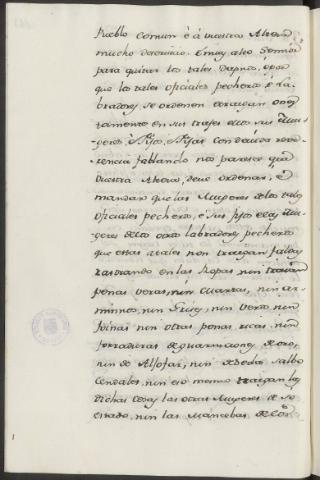 Pueblo comun é á vuestra Alteza
mucho deservicio. E muy alto Señor
para quitar los tales daños, é por
que los tales oficiales pecheros é La-
bradores se ordenen é traigan ones-
tamente en sus trajes ellos sus Mu-
geres é Fijos, é Fijas con devida reve-
rencia fablando nos parece que
Vuestra Alteza, deve ordenar, é
mandar que las Mugeres de los tales
oficiales pecheros, é sus fijos é las Mu-
geres de los otros labradores pecheros
que estas atales non traigan faldas
rastrando en las Ropas, nin traian
penas veras, nin Martas, nin ar-
miños, nin Grises, nin Veros, nin
Foinas nin otras penas ricas, nin
forraduras de guarniciones de oro,
nin de Aljofar, nin de seda salvo
Cendales, nin eso mesmo traigan las
dichas cosas las otras Mugeres de so
estado, nin las Mancebas de los